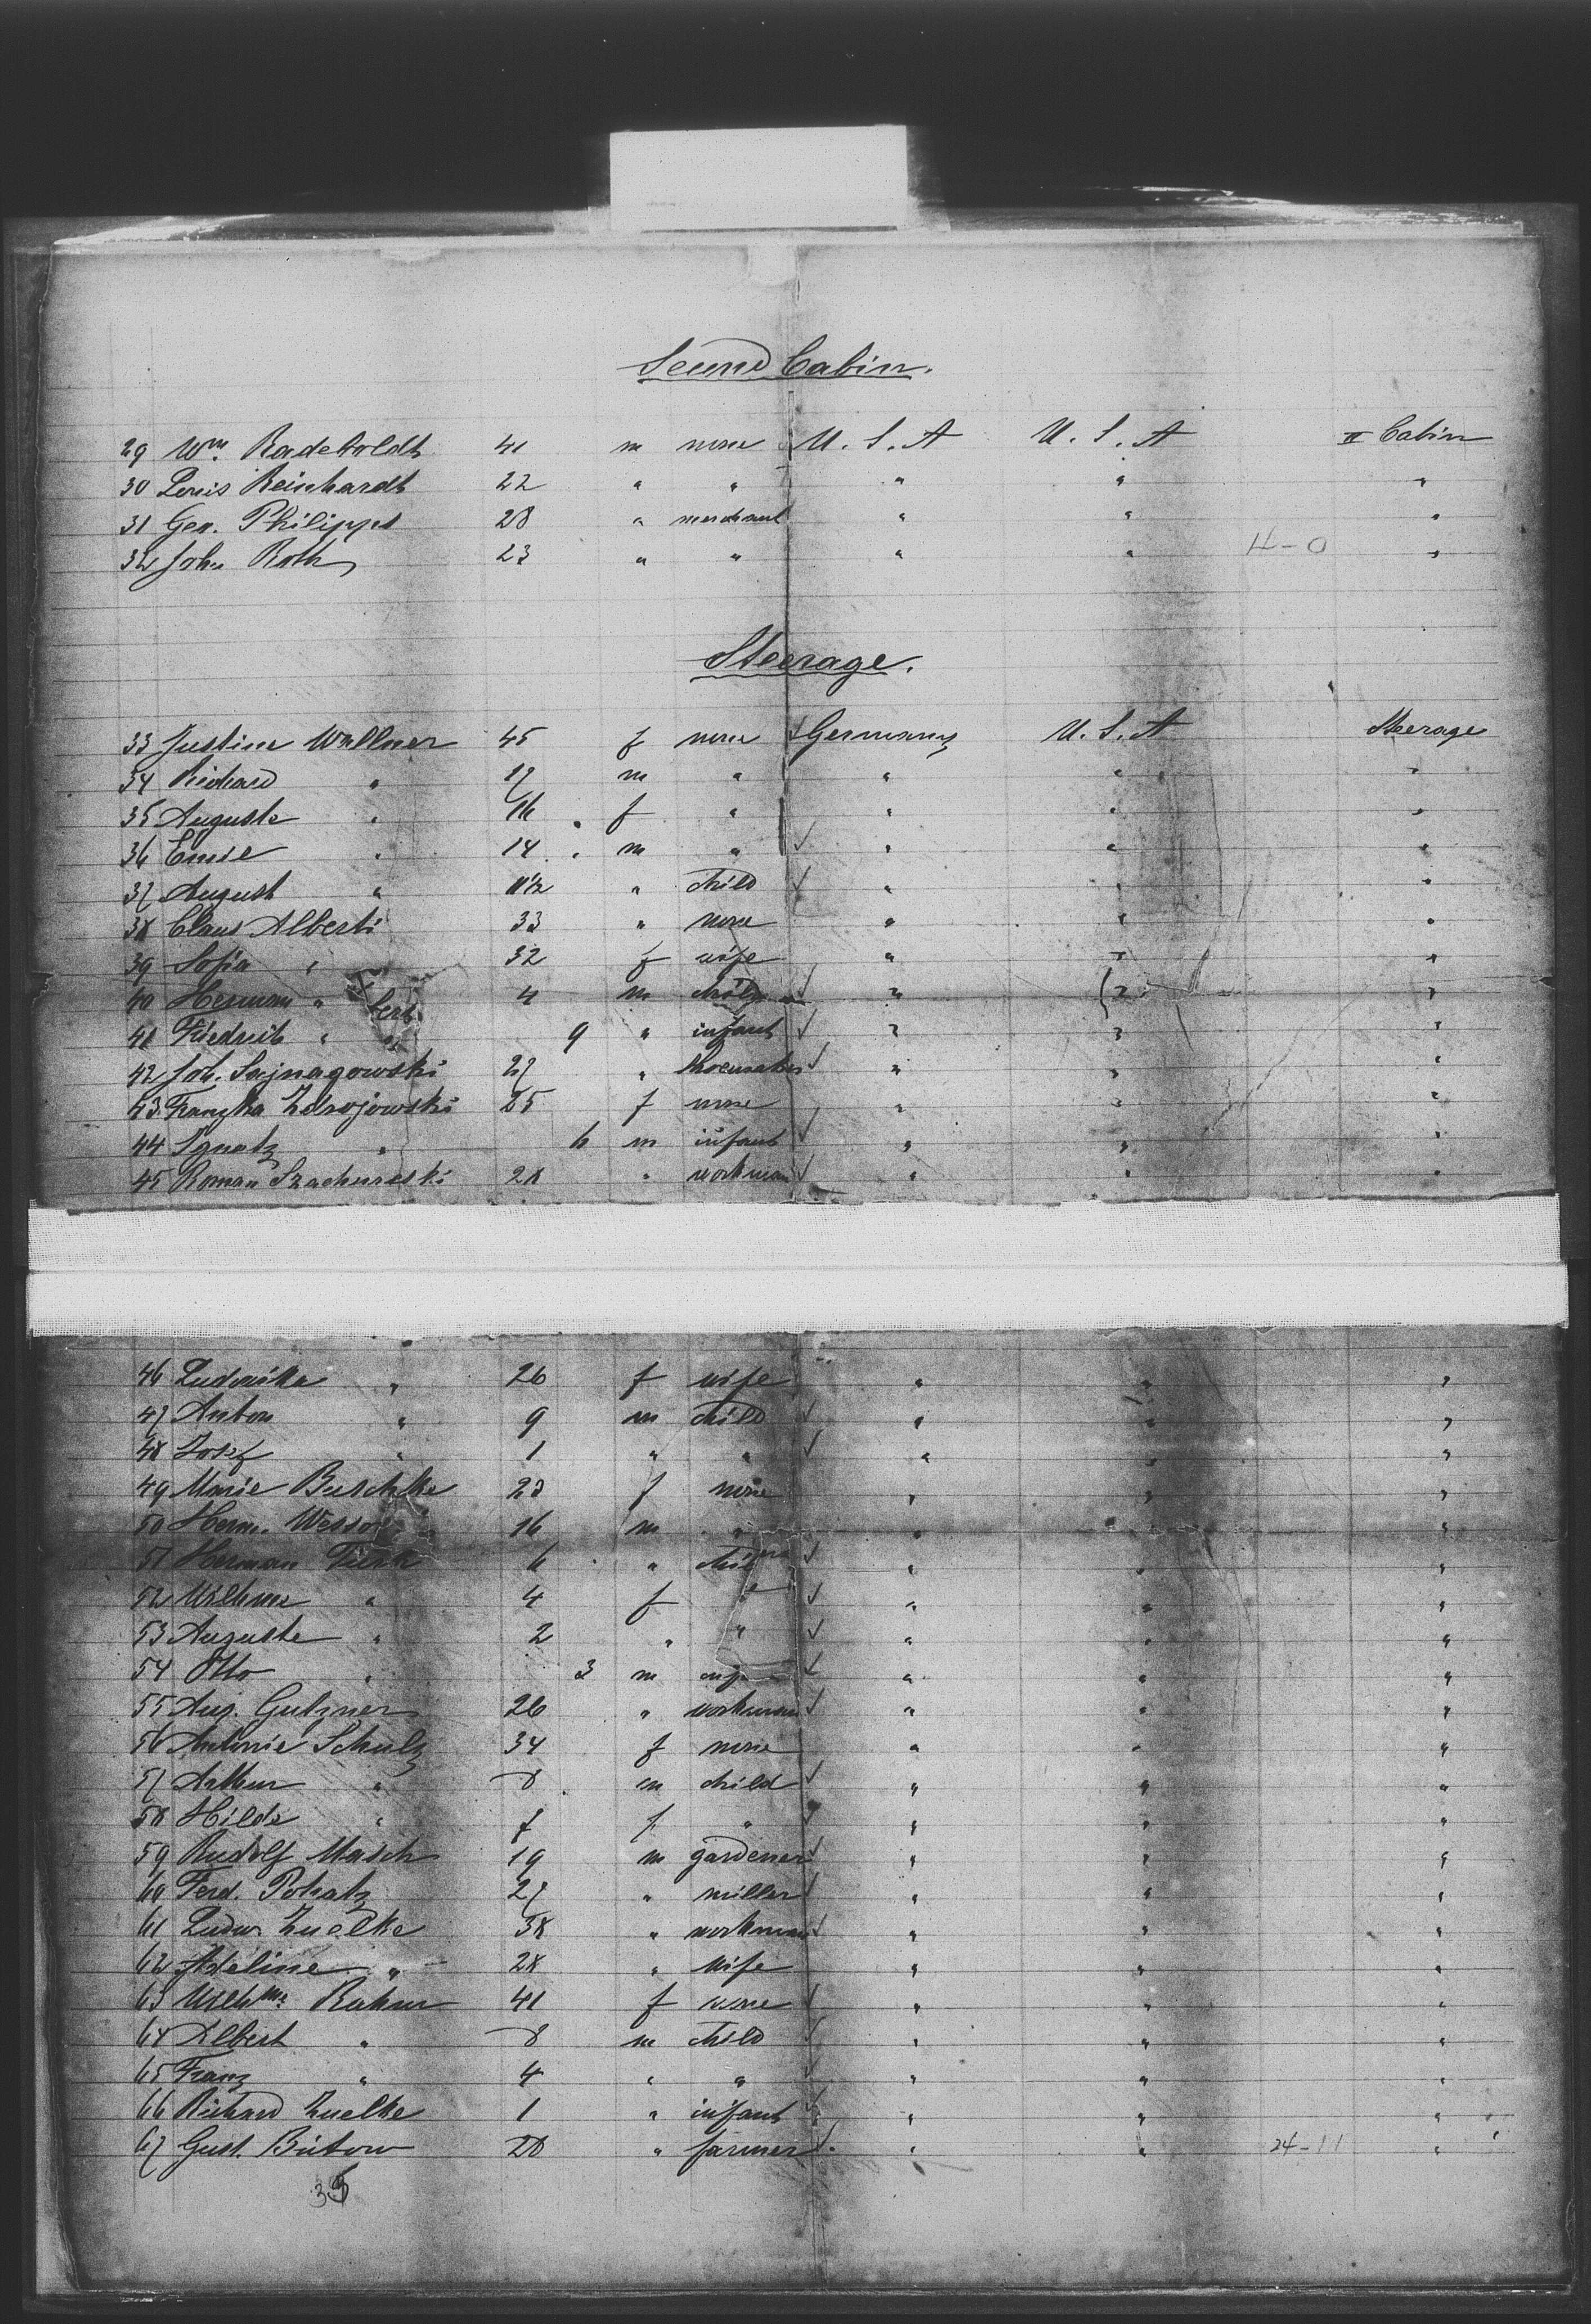 Second Cabin.
29 Wm. Radeboldt 41 m none U. S. A U. S. A II Cabin
30 Louis Reinhardt 22 " " " " "
31 Geo. Philipps 28 " merchant " " "
32 Joh. Roth 23 " " " " 4-0 "
Steerage.
33 Justine Wallner 45 f none Germany U. S. A Steerage
34 Richard " 17 m " " " "
35 Auguste " 16 f " " " "
36 Emil " 14 m " " " "
37 August " 11½ " child " " "
38 Claus Alberti 33 " none " " "
39 Sofia " 32 f wife " " "
40 Hermann " 4 m child " " "
41 Friedrich " 9 " infant " " "
42 Joh. Sajnagowski 27 " shoemaker " " "
43 Franzka Zdrojowski 25 f none " " "
44 Ignatz " 6 m infant " " "
45 Roman Szachureski 28 " workman " " "
46 Ludowika " 26 f wife " " "
47 Anton " 9 m child " " "
48 Josef " 1 " " " " "
49 Marie Buschke 23 f none " " "
50 Herm. 16 m " " " "
51 Herman Funk 6 " child " " "
52 Wilhme " 4 f " " " "
53 Auguste " 2 " " " " "
54 Otto " 3 m " " "
55 Aug. Gutzner 26 " workman " " "
56 Antonie Schulz 34 f none " " "
57 Arthur " 8 m child " " "
58 Hilda " 7 f " " " "
59 Rudolf Masch 19 m gardener " " "
60 Ferd. Pohatz 27 " miller " " "
61 Ludw. Zuelke 38 " workman " " "
62 Adeline " 28 " wife " " "
63 Wilhme. Rahm 41 f none " " "
64 Albert " 8 m child " " "
65 Franz " 4 " " " " "
66 Richard Zuelke 1 " infant " " "
67 Gust. Bütow 28 " farmer " " 24-11 "
35